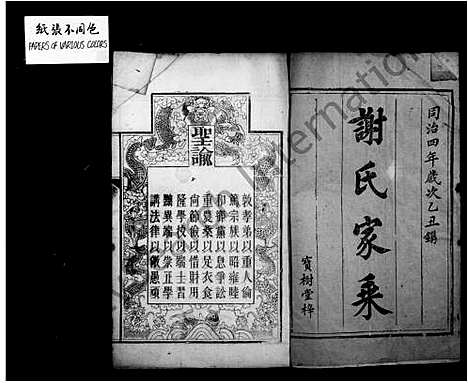 紙張不同色
PAPERS OF VARIOUS COLORS
同治四年歲次乙丑鐫
謝氏家乘
寶樹堂梓
聖諭
敦孝弟以重人倫
篤宗族以昭雍睦
和鄉黨以息爭訟
重農桑以足衣食
尚節儉以惜財用
隆學校以端士習
黜異端以崇正學
講法律以儆愚頑
International